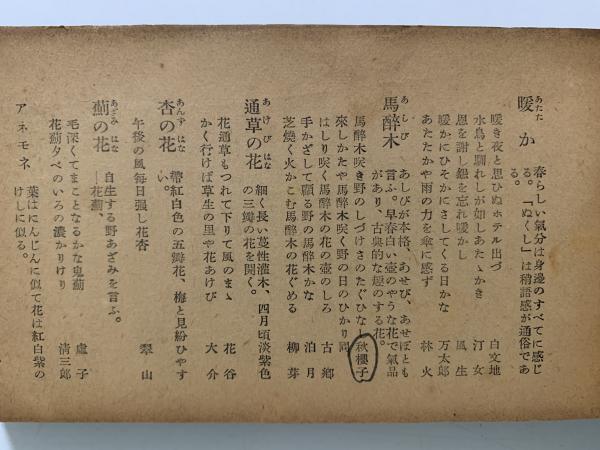 あたた
暖か 春らしい氣分は身邊のすべてに感じ
る。「ぬくし」は稍語感が通俗であ
暖き夜と思ひぬホテル出づ 白文地
水鳥と馴れしが如しあたゝかき 汀女
恩を謝し怨を忘れ暖かし 風生
暖かにひそかにさしてくる日かな 万太郎
あたたかや雨の力を傘に感ず 林火
あしび
馬醉木 あしびが本格、あせび、あせぼとも
言ふ。早春白い壺のやうな花で氣品
があり、古典的な趣のする花。
馬醉木咲き野のしづけさのたぐひな 秋櫻子
來しかたや馬醉木咲く野の日のひかり 同
はしり咲く馬醉木の花の壺のしろ 古郷
手かざして顧る野の馬醉木かな 泊月
芝燒く火かこむ馬醉木の花ぐめる 柳芽
あけび はな
通草の花 細く長い蔓性灌木、四月頃淡紫色
の三瓣の花を開く。
花通草もつれて下りて風のまゝ 花谷
かく行けば草生の里や花あけび 大介
あんず はな
杏の花 帶紅白色の五瓣花、梅と見紛ひやす
い。
午後の風毎日强し花杏 翠山
あざみ はな
薊の花 自生する野あざみを言ふ。
―花薊、
毛深くてまことなるかな鬼薊 虚子
花薊夕べのいろの濃かりけり 淸三郎
アネモネ 葉はにんじんに似て花は紅白紫の
けしに似る。